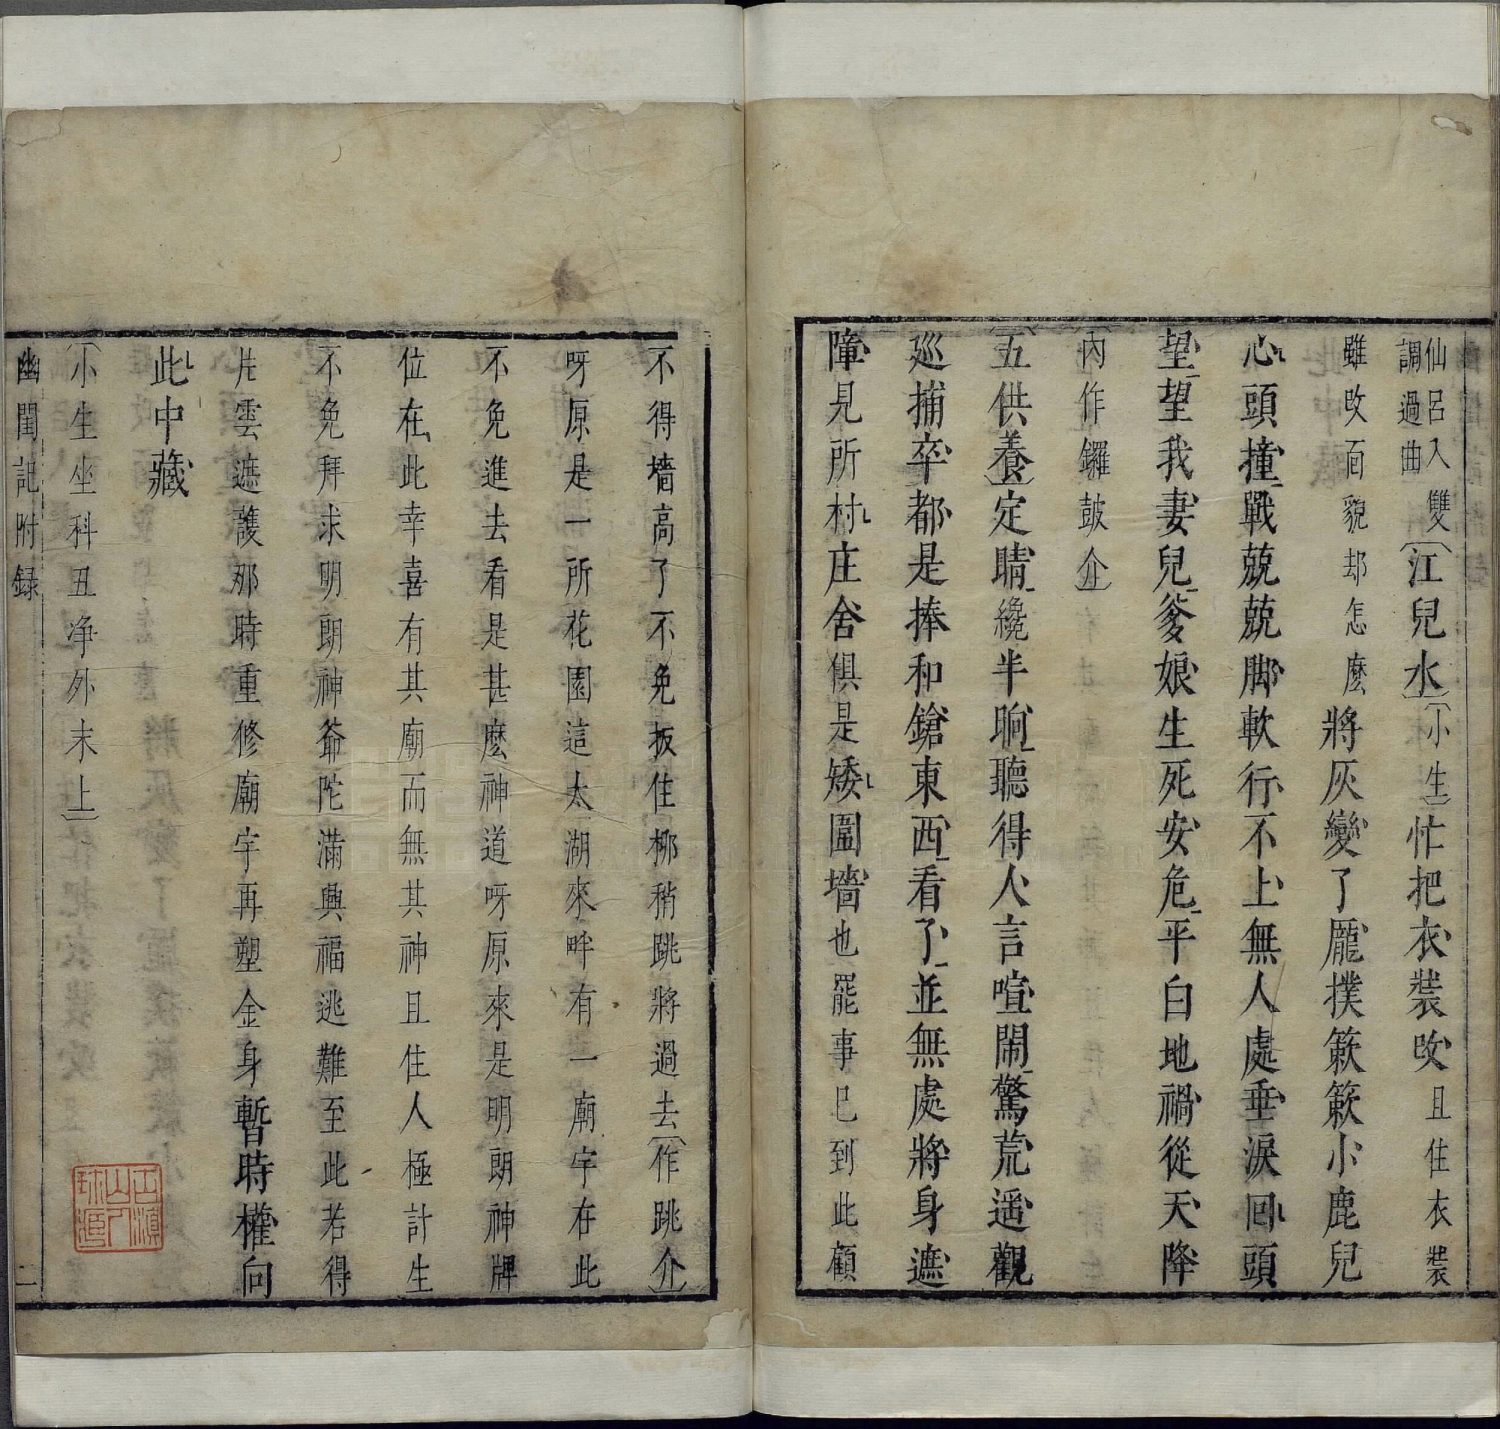 仙呂入雙調過曲〔江兒水〕〔小生〕忙把衣裝改且住衣裝
雖改面貌却怎麽將灰變了龐撲簌簌小鹿兒
心頭撞戰兢兢脚軟行不上無人處垂淚回頭
望望我妻兒爹娘生死安危平白地禍從天降
〔內作鑼鼓介〕
〔五供養〕定睛纔半晌聽得人言喧鬧驚荒遥觀
巡捕卒都是捧和鎗東西看了並無處將身遮
障見所村庄舍俱是矮圍墻也罷事已到此顧
不得墻高了不免扳住柳稍跳將過去〔作跳介〕
呀原是一所花園這太湖來畔有一廟宇在此
不免進去看是甚麽神道呀原來是明朗神牌
位在此幸喜有其廟而無其神且住人極計生
不免拜求明朗神爺陀滿興福逃難至此若得
片雲遮護那時重修廟宇再塑金身暫時權向
此中藏
〔小生坐科丑净外末上〕
幽閨記附録
二